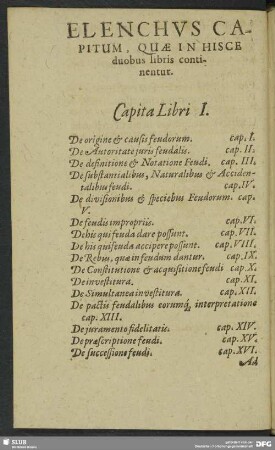 ELENCHVS CA-
PITUM, QUÆ IN HISCE
duobus libris conti-
nentur.
Capita Libri I.
De origine & causis feudorum. cap. I.
De Autoritate juris feudalis. cap. II.
De definitione & Notatione Feudi. cap. III.
De substantialibus, Naturalibus & Acciden-
talibus feudi. cap. IV.
De divisionibus & speciebus Feudorum. cap.
V.
De feudis impropriis. cap. VI.
De his qui feuda dare possunt. cap. VII.
De his qui feuda accipere possunt. cap. VIII.
De Rebus, quæ in feudum dantur. cap. IX.
De Constitutione & acquisitione feudi cap. X.
De investitura. cap. XI.
De Simultanea investitura. cap. XII.
De pactis feudalibus eorumq́; interpretatione
cap. XIII.
De juramento fidelitatis. cap. XIV.
De præscriptione feudi. cap. XV.
De successione feudi. cap. XVI.
Ad
SLUB